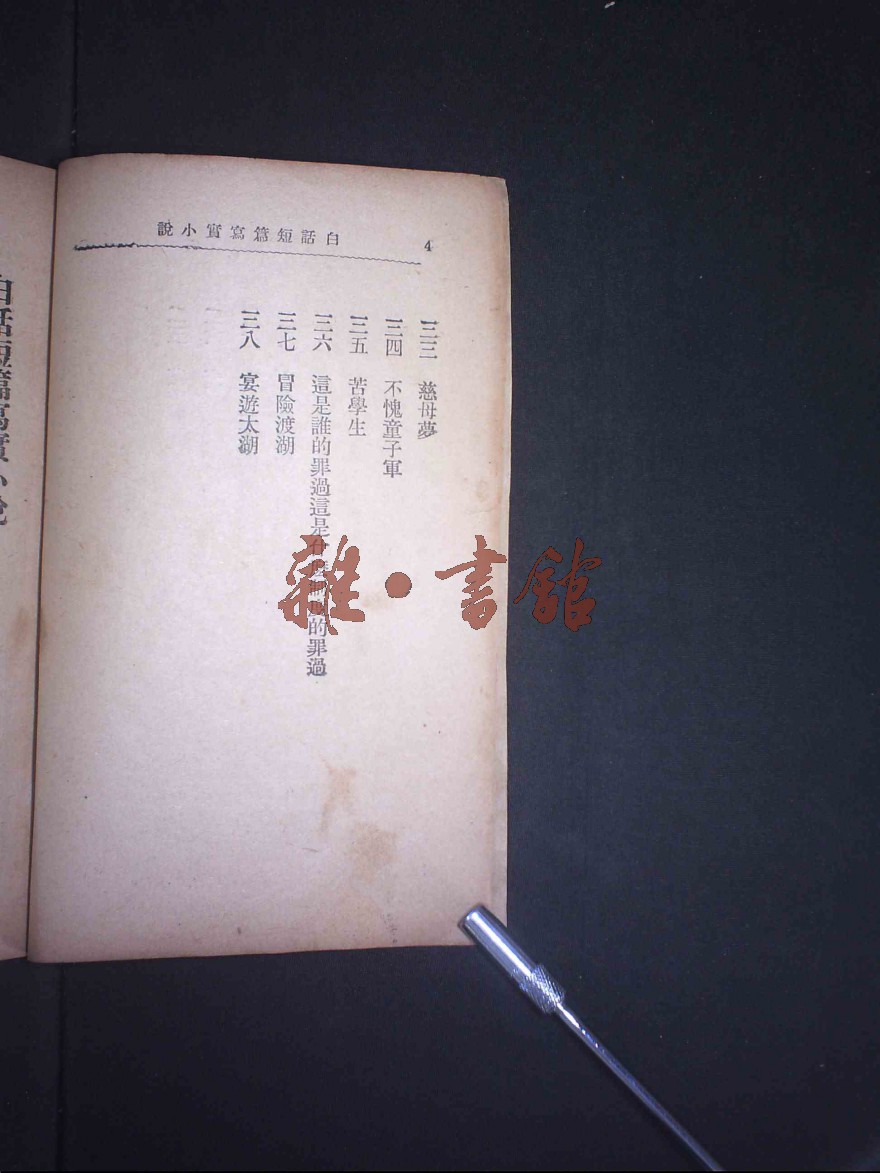 白話短篇寫實小說
4
三三 慈母夢
三四 不愧童子軍
三五 苦學生
三六 這是誰的罪過這是什麼制度的罪過
三七 冒險渡湖
三八 宴遊太湖
雜·書館
白話短篇寫實小說